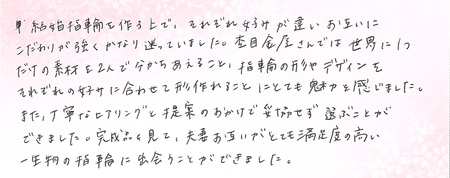 結婚指輪を作る上で、それぞれ好みが違いお互いに
こだわりが強くかなり迷っていました。杢目金屋さんでは世界に1つ
だけの素材を2人で分かちあえること、指輪の形やデザインを
それぞれの好みに合わせて形作れることにとても魅力を感じました。
また、丁寧なヒアリングと提案のおかげで妥協せず選ぶことが
できました。完成品を見て、夫妻お互いがとても満足度の高い
一生物の指輪に出会うことができました。